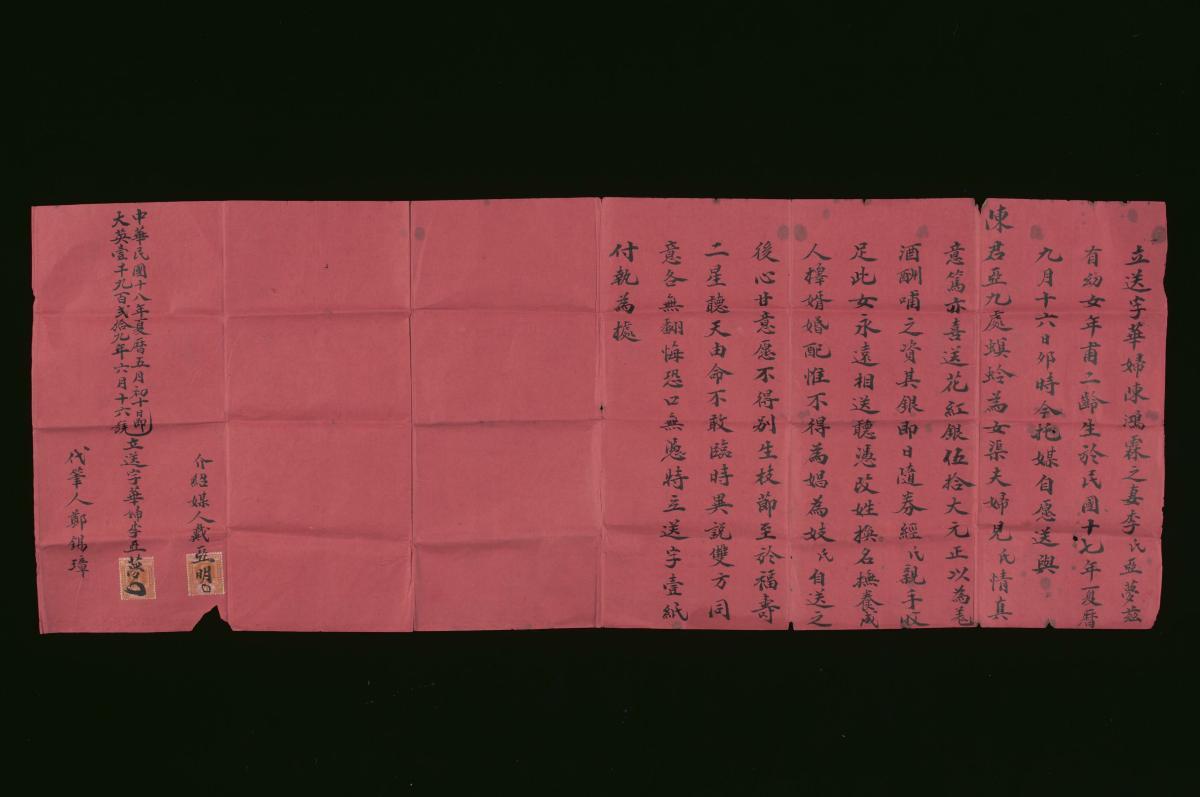 立送字華婦陳鴻霖之妻李氏亞夢茲
有幼女年甫二齡生於民國十七年夏曆
九月十六日夘時今托媒自愿送與
陳君亞九處螟蛉為女渠夫婦見氏情真
意篤亦喜送花紅銀伍拾大元正以為
酒酬哺之資其銀即日隨券經氏親手收
足此女永遠相送聽憑改姓換名撫養成
人擇婿婚配惟不得為娼為妓氏自送之
後心甘意愿不得别生枝節至於福壽
二星聽天由命不敢臨時異說雙方同
意各無翻悔恐口無慿特立送字壹紙
付執為據
介紹媒人戴亞明
中華民國十八年夏曆五月初十日即
大英壹千九百弍拾九年六月十六號
立送字華婦李亞夢
代筆人鄭錫璋